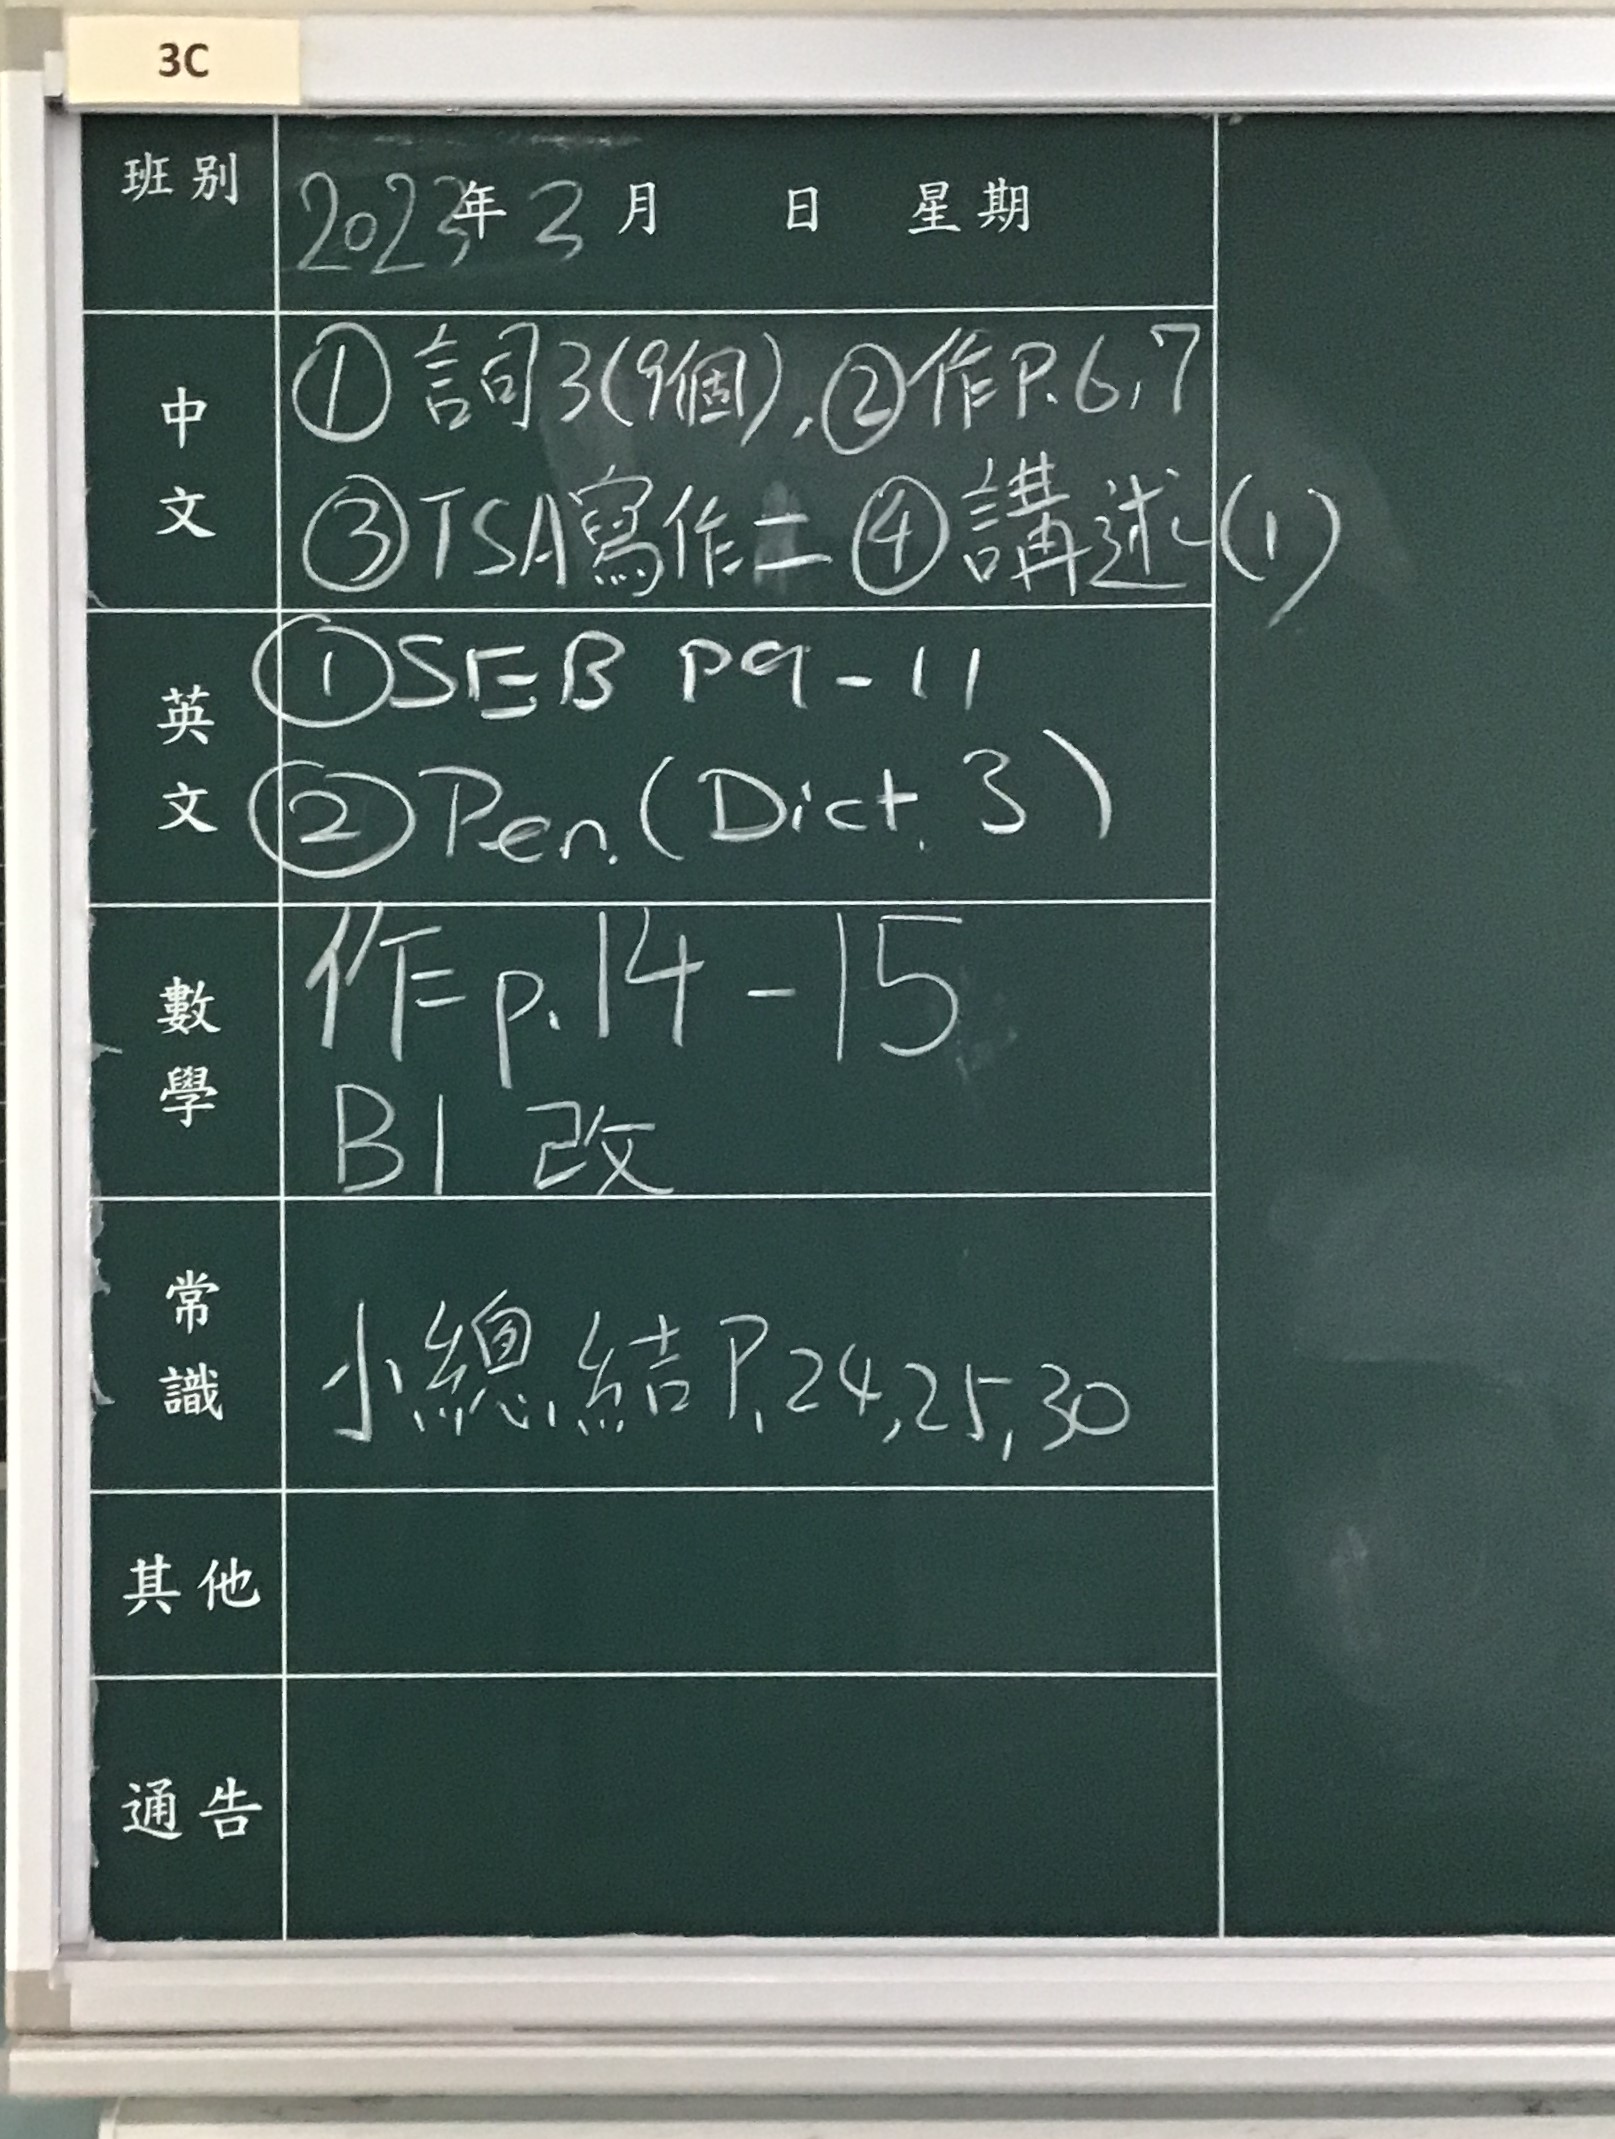 3C
班別
2023年3月 日 星期
中文
①詞3(9個),②作P.6,7
③TSA寫作二④講述(1)
英文
①SEB P9-11
②Pen.(Dict.3)
數學
作p.14-15
B1 改
常識
小總結P.24,25,30
其他
通告